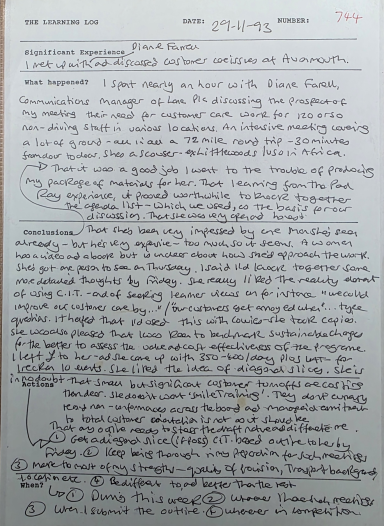 744
THE LEARNING LOG DATE: 29-11-93 NUMBER:
Significant Experience Diane Farell
I met up with and discussed customer care issues at Avonmouth.
What happened? I spent nearly an hour with Diane Farell,
Communications Manager of Lane Plc discussing the prospect of
my meeting their need for customer care work for 120 or so
non-driving staff in various locations. An intensive meeting covering
a lot of ground - all in all a 72 mile round trip - 30 minutes
from door to door. She's a scouser - ex Littlewoods / used in Africa.
That it was a good job I went to the trouble of producing
my package of materials for her. That learning from the Paul
Ray experience, it proved worthwhile to knock together
the agenda list - which we used as the basis for our
discussion. That she was very open and honest
Conclusions That she's been very impressed by one man she's seen
already - but he's very expensive - too much so it seems. A woman
has a video and a book but is unclear about how she'd approach the work.
She's got one person to see on Thursday. I said I'd knock together some
more detailed thoughts by Friday. She really liked the reality element
of using C.I.T. - and of seeking learner views on for instance "we could
improve our customer care by..." / "our customers get annoyed when..." type
questions. It helped that I'd used this with courier - and took copies.
She was also pleased that was keen to benchmark sustainable changes
for the better to assess the value and cost effectiveness of the programme
I left it to her - and she came up with 350-400/day plus VAT - for
I reckon 10 events. She liked the idea of diagonal slices. She is
in no doubt that small but significant customer turnoffs are costing
Actions them dear. She doesn't want 'smile training'. They don't currently
trend non-conformances across the board and managerial commitment
to total customer orientation is not as it should be.
That as I give ready to start the draft nature and different me.
① Get a diagonal slice (if poss) C.I.T. based outline to her by
Friday. ② Keep being thorough in my preparation for such meetings
③ make the most of my strengths - quality of provision, Transport background,
Location etc. ④ Be different and better than the rest
When? ① During this week ② Whenever I have such meetings
③ When I submit the outline. ④ whenever in competition